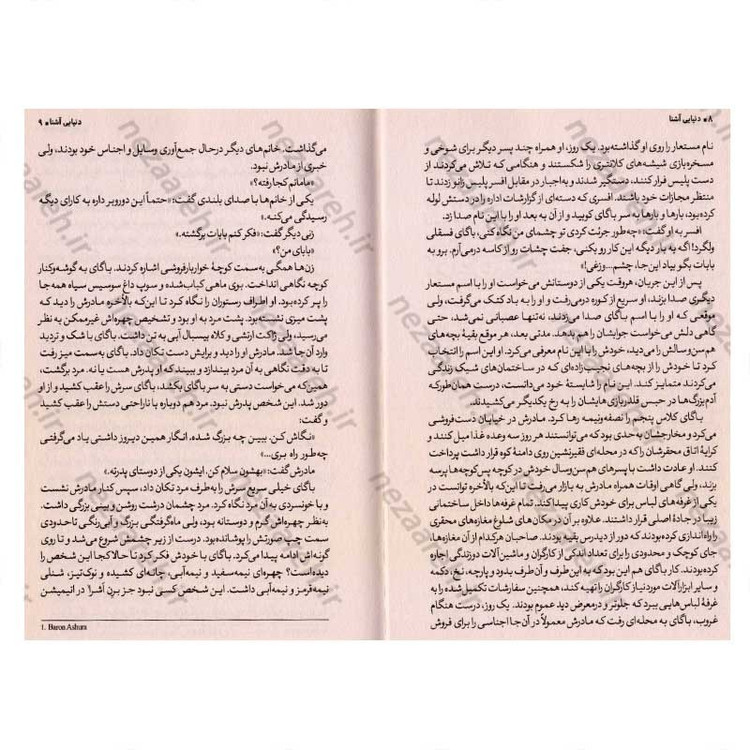 ۸ • دنیایی آشنا
نام مستعار را روی او گذاشته بود. یک روز، او همراه چند پسر دیگر برای شوخی و
مسخره‌بازی شیشه‌های کلانتری را شکستند و هنگامی که تلاش می‌کردند از
دست پلیس فرار کنند، دستگیر شدند و به‌اجبار در مقابل افسر پلیس زانو زدند تا
منتظر مجازات خود باشند. افسری که دسته‌ای از گزارشات اداره را در دستش لوله
کرده بود، بارها و بارها به سر باگای کوبید و از آن به بعد او را با این نام صدا زد.
افسر به او گفت: «چه‌طور جرئت کردی تو چشمای من نگاه کنی، باگای فسقلی
ولگرد! اگه یه بار دیگه این کار رو بکنی، جفت چشات رو از کاسه درمی‌آرم. برو به
بابات بگو بیاد این‌جا، چشم... وزغی!»
پس از این جریان، هروقت یکی از دوستانش می‌خواست او را با اسم مستعار
دیگری صدا بزند، او سریع از کوره درمی‌رفت و او را به باد کتک می‌گرفت، ولی
موقعی که او را با اسم باگای صدا می‌زدند، نه‌تنها عصبانی نمی‌شد، حتی
گاهی دلش می‌خواست جوابشان را هم بدهد. مدتی بعد، هر موقع بقیهٔ بچه‌های
هم‌سن‌وسالش را می‌دید، خودش را با این نام معرفی می‌کرد. او این اسم را انتخاب
کرد تا خودش را از بچه‌های نجیب‌زاده‌ای که در ساختمان‌های شیک زندگی
می‌کردند متمایز کند. این نام را شایستهٔ خود می‌دانست، درست همان‌طور که
آدم‌بزرگ‌ها در حبس قلدربازی‌هایشان را به رخ یکدیگر می‌کشیدند.
باگای کلاس پنجم را نصفه‌ونیمه رها کرد. مادرش در خیابان دست‌فروشی
می‌کرد و مخارجشان به‌حدی بود که می‌توانستند هر روز سه وعده غذا میل کنند و
کرایهٔ اتاق محقرشان را که در محله‌ای فقیرنشین روی دامنهٔ کوه قرار داشت پرداخت
کنند. او عادت داشت با پسرهای هم‌سن‌وسال خودش در کوچه پس‌کوچه‌ها پرسه
بزند، ولی گاهی اوقات همراه مادرش به بازار می‌رفت تا این‌که بالأخره توانست در
یکی از غرفه‌های لباس برای خودش کاری پیدا کند. تمام غرفه‌ها داخل ساختمانی
زیبا در جادهٔ اصلی قرار داشتند. علاوه بر آن در مکان‌های شلوغ مغازه‌های محقری
را راه‌اندازی کرده بودند که دور از دیدرس بقیه بودند. صاحبان هرکدام از آن مغازه‌ها،
جای کوچک و محدودی را برای تعداد اندکی از کارگران و ماشین‌آلات دوزندگی اجاره
کرده بودند. کار باگای هم این بود که به این‌طرف و آن‌طرف بدود و پارچه، نخ، دکمه
و سایر ابزارآلات موردنیاز کارگران را تهیه کند، همچنین سفارشات تکمیل‌شده را به
غرفهٔ لباس‌هایی ببرد که جلوتر و درمعرض دید عموم بودند. یک روز، درست هنگام
غروب، باگای به محله‌ای رفت که مادرش معمولاً در آن‌جا اجناسی را برای فروش
دنیایی آشنا • ۹
می‌گذاشت. خانم‌های دیگر درحال جمع‌آوری وسایل و اجناس خود بودند، ولی
خبری از مادرش نبود.
«مامانم کجا رفته؟»
یکی از خانم‌ها با صدای بلندی گفت: «حتماً این دوروبر داره به کارای دیگه
رسیدگی می‌کنه.»
زنی دیگر گفت: «فکر کنم بابات برگشته.»
«بابای من؟»
زن‌ها همگی به‌سمت کوچهٔ خواربارفروشی اشاره کردند. باگای به گوشه‌وکنار
کوچه نگاهی انداخت. بوی ماهی کباب‌شده و سوپ داغ سوسیس سیاه همه‌جا
را پر کرده بود. او اطراف رستوران را نگاه کرد تا این‌که بالأخره مادرش را دید که
پشت میزی نشسته بود. پشت مرد به او بود و تشخیص چهره‌اش غیرممکن به نظر
می‌رسید، ولی ژاکت ارتشی و کلاه بیسبال آبی به تن داشت. باگای با شک و تردید
وارد آن‌جا شد. مادرش او را دید و برایش دست تکان داد. باگای به سمت میز رفت
تا به دقت نگاهی به آن مرد بیندازد و ببیند که او پدرش هست یا نه. مرد برگشت،
همین‌که می‌خواست دستی به سر باگای بکشد، باگای سرش را عقب کشید و از او
دور شد. این شخص پدرش نبود. مرد هم دوباره با ناراحتی دستش را عقب کشید
و گفت:
«نگاش کن. ببین چه بزرگ شده، انگار همین دیروز داشتی یاد می‌گرفتی
چه‌طور راه بری...»
مادرش گفت: «بهشون سلام کن. ایشون یکی از دوستای پدرته.»
باگای خیلی سریع سرش را به‌طرف مرد تکان داد، سپس کنار مادرش نشست
و با خونسردی به آن مرد نگاه کرد. مرد چشمان درشت روشن و بینی بزرگی داشت.
به‌نظر چهره‌اش گرم و دوستانه بود، ولی ماه‌گرفتگی بزرگ و آبی‌رنگی تاحدودی
سمت چپ صورتش را پوشانده بود. درست از زیر چشمش شروع می‌شد و تا روی
گونه‌اش ادامه پیدا می‌کرد. باگای با خودش فکر کرد تا حالا کجا این شخص را
دیده است؟ چهره‌ای نیمه‌سفید و نیمه‌آبی، چانه‌ای کشیده و نوک‌تیز، شنلی
نیمه‌قرمز و نیمه‌آبی داشت. این شخص کسی نبود جز برن آشرا در انیمیشن
1. Baron Ashura
nezaareh.ir